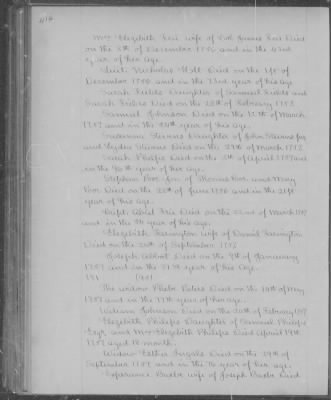 414
Mrs Elizabeth Frie wife of Colo James Frie Died
on the 8th of December 1756 and in the 42nd
year of her age.
Lieut. Nicholas Holt Died on the 1st of
December 1756 and in the 73rd year of his age
Sarah Fields Daughter of Samuel Fields and
Sarah Fields Died on the 28th of February 1757
Samuel Johnson Died on the 12th of March
1757 and in the year of his age.
Susannah Stevens Daughter of John Stevens Jur
and Lydia Stevens Died on the 29th of March 1757
Sarah Phelps Died on the 5th of April 1757 and
in the year of his age.
Stephen Poor Son of Thomas Poor and Mary
Poor Died on the 20th of June 1756 and in the 21st
year of his age.
Capt. Abiel Frie Died on the 22nd of March 1757
and in the year of his age.
Elizabeth Farington wife of Daniel Farington
Died on the 20th of September 1756
Joseph Abbot Died on the 9th of January
1757 and in the year of his age.
The widow Phebe Peters Died on the 10th of May
1757 and in the 77th year of her age.
William Johnson Died on the 20th of February 1757
Elizabeth Philips Daughter of Samuel Philips
Esqr. and Mrs Elizabeth Philips Died April 19th
1757 aged 18 month.
Widow Esther Ingals Died on the 29th of
September 1757 and in the year of her age.
Experience wife of Joseph Died